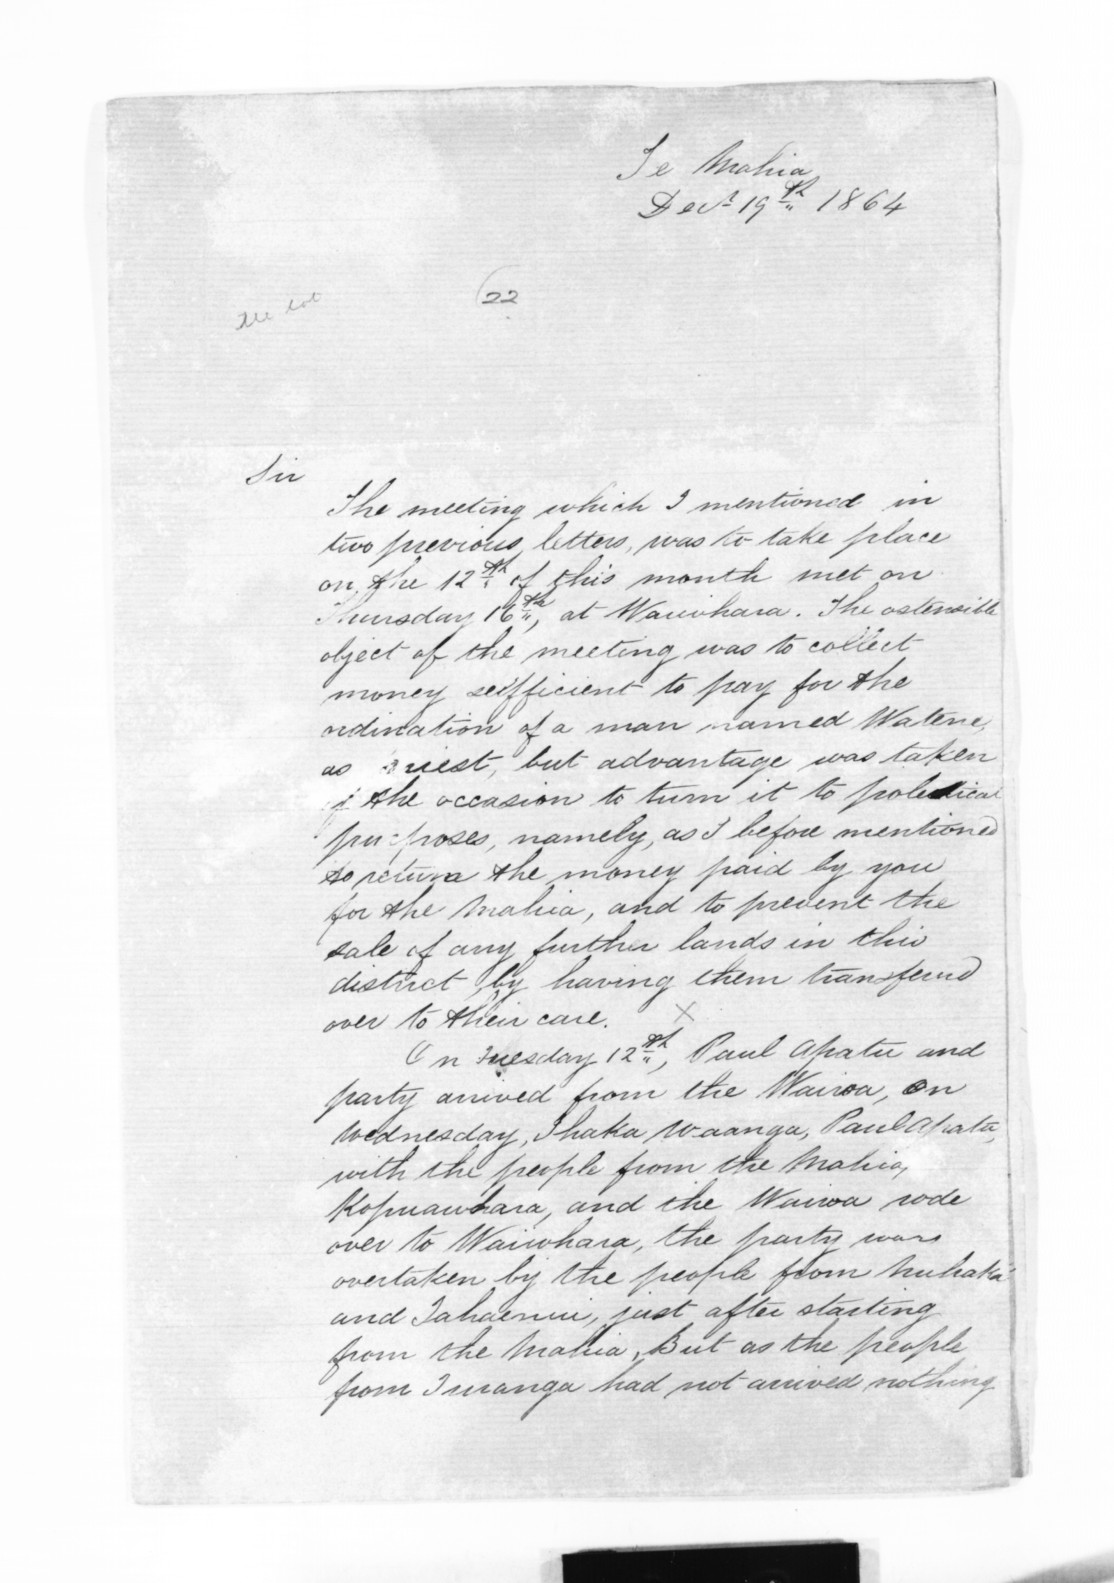 Te Mahia
Decr 19th 1864
(22
Sir
The meeting which I mentioned in
two previous letters, was to take place
on the 12th of this month met on
Thursday 16th, at Waiwhara. The ostensible
object of the meeting was to collect
money sufficient to pay for the
ordination of a man named Watene,
as Priest, but advantage was taken
of the occasion to turn it to political
purposes, namely, as I before mentioned
to return the money paid by you
for the Mahia, and to prevent the
sale of any further lands in this
district by having them transferred
over to their care. X
On Tuesday 12th, Paul Apatu and
party arived from the Wairoa, on
Wednesday, Ihaka Waanga, Paul Apatu,
with the people from the Mahia,
Kopuawhara, and the Wairoa rode
over to Waiwhara, the party was
overtaken by the people from Nuhaka
and Tahaenui, just after starting
from the Mahia, But as the people
from Turanga had not arived nothing